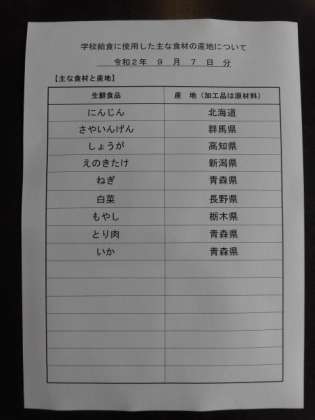 学校給食に使用した主な食材の産地について
令和2年 9 月 7 日 分
【主な食材と産地】
生鮮食品 産 地（加工品は原材料）
にんじん 北海道
さやいんげん 群馬県
しょうが 高知県
えのきたけ 新潟県
ねぎ 青森県
白菜 長野県
もやし 栃木県
とり肉 青森県
いか 青森県